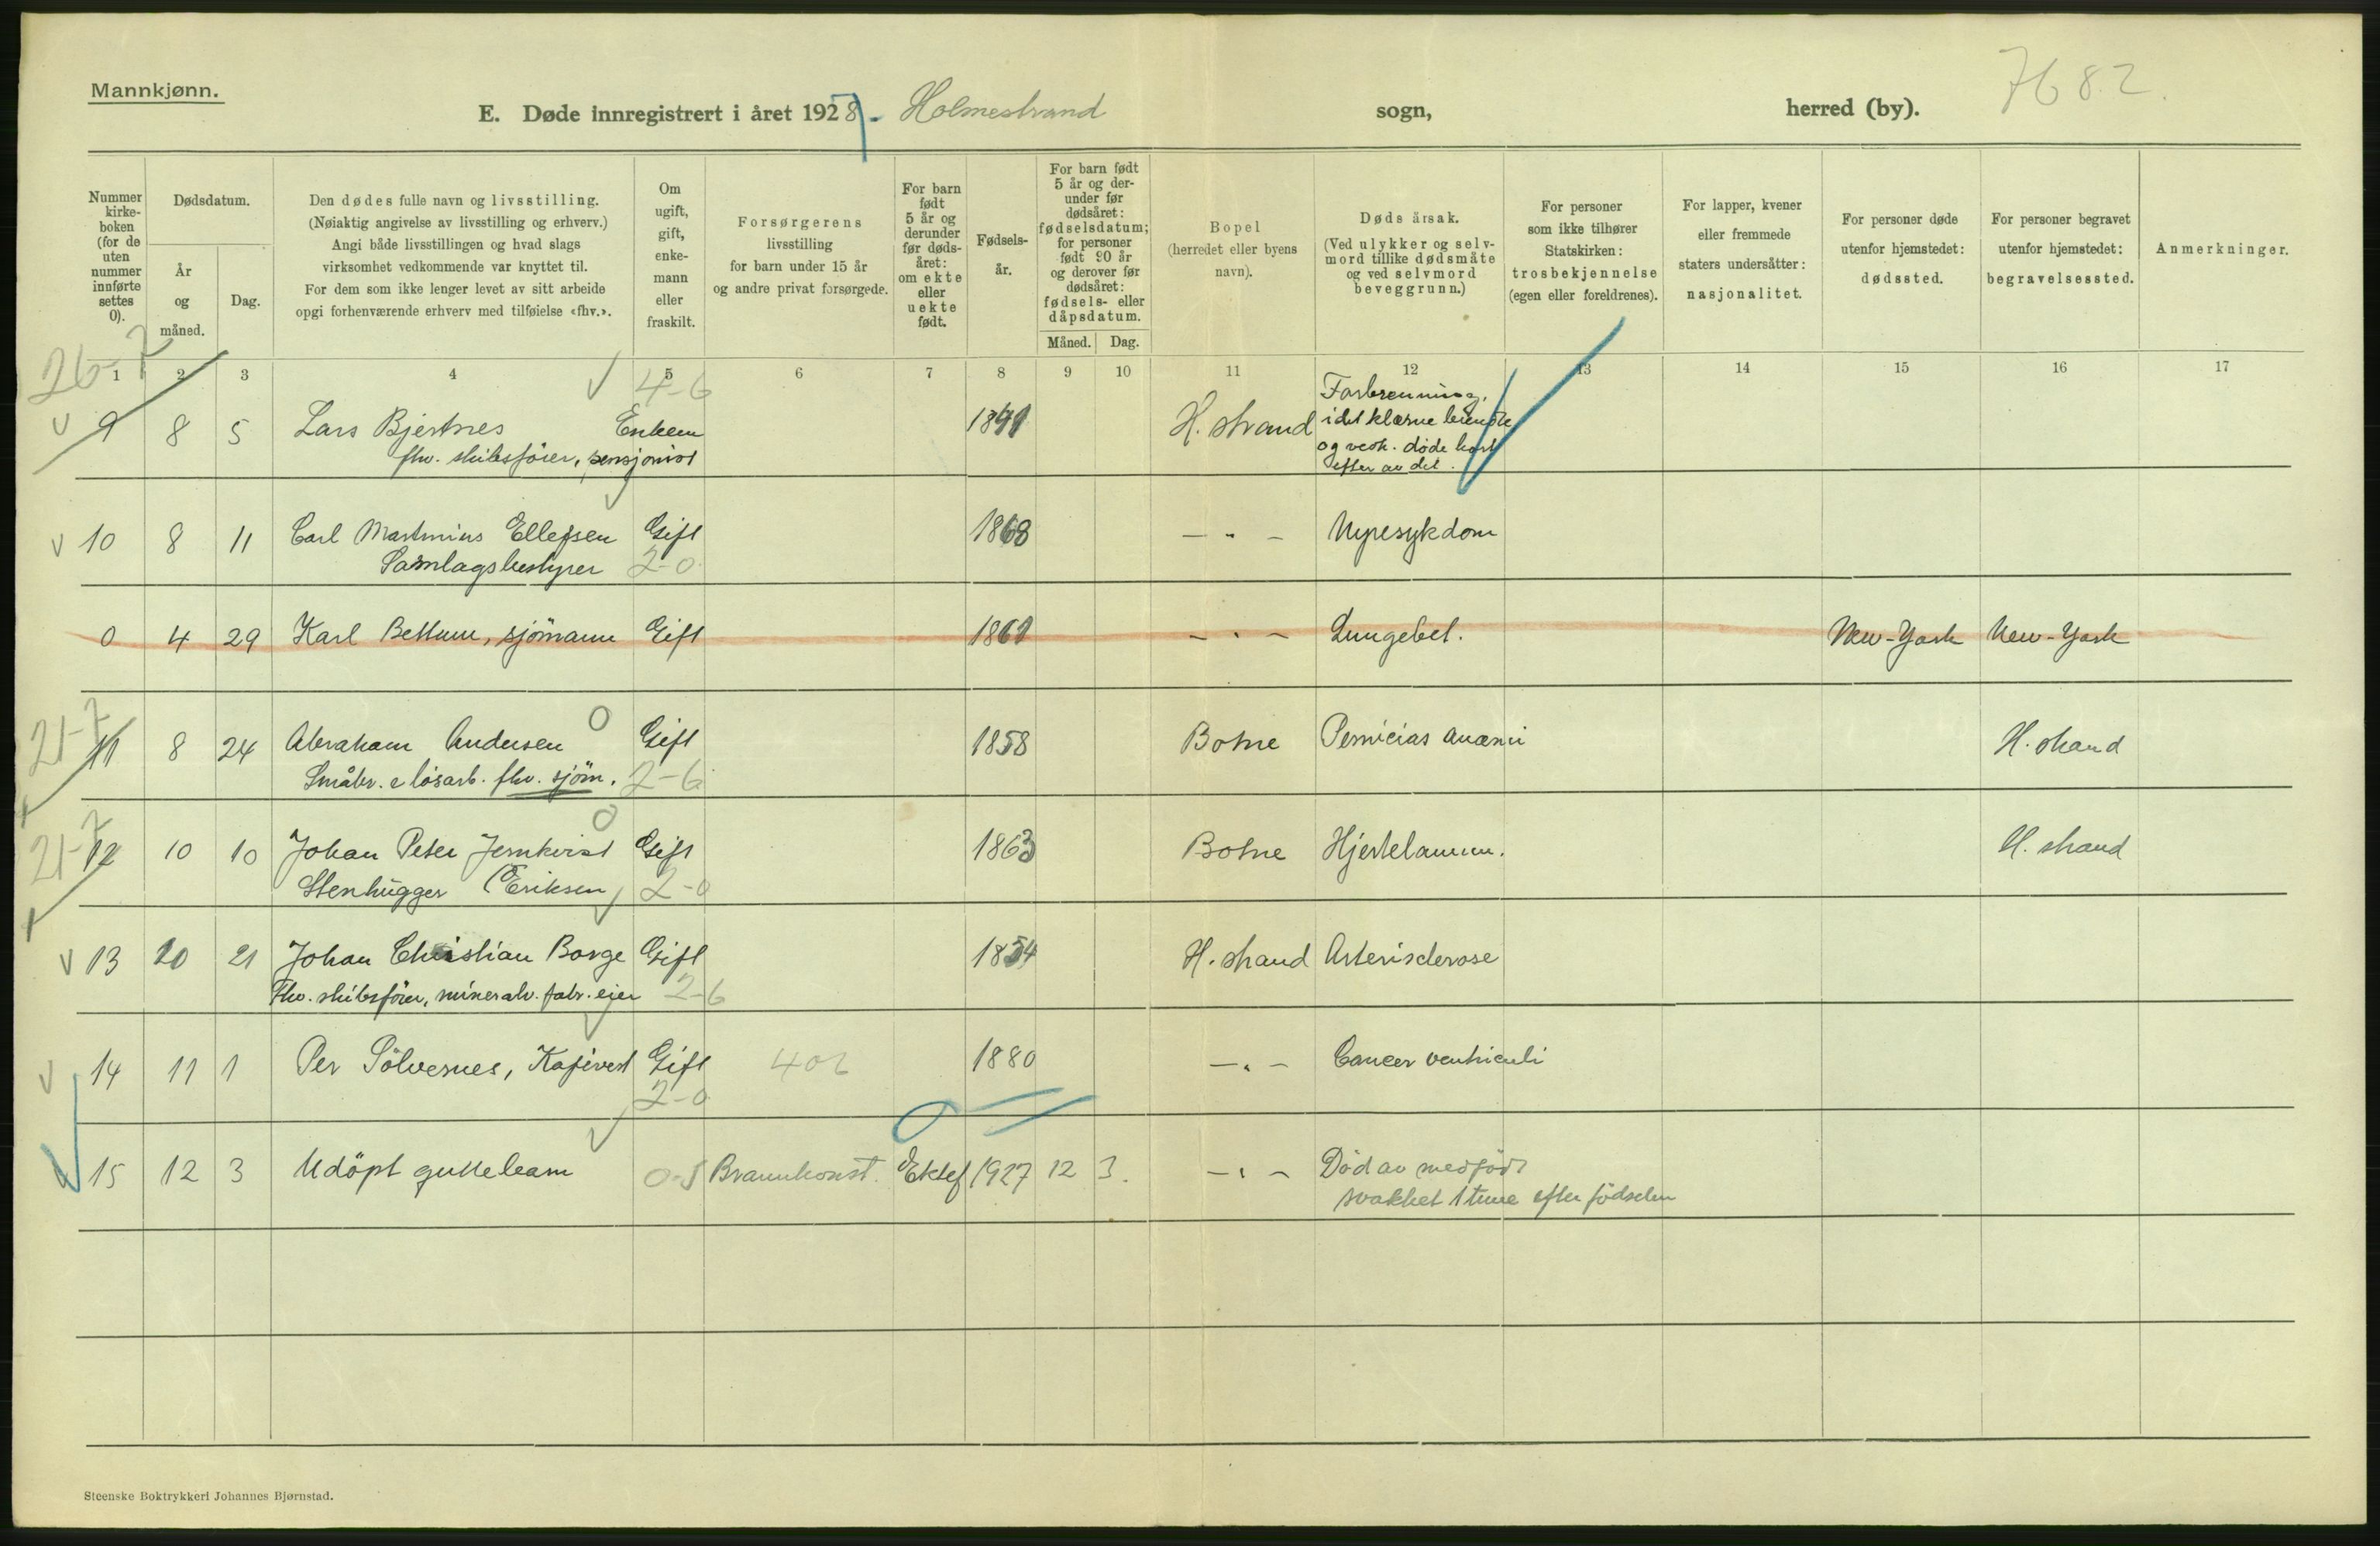 Mannkjønn.
E. Døde innregistrert i året 1928 7. Holmestrand sogn, herred (by). 7682.
Nummer kirke-boken (for de uten nummer innførte settes 0).
Dødsdatum.
År og måned.
Dag.
Den dødes fulle navn og livsstilling.
(Nøiaktig angivelse av livsstilling og erhverv.)
Angi både livsstillingen og hvad slags
virksomhet vedkommende var knyttet til.
For dem som ikke lenger levet av sitt arbeide
opgi forhenværende erhverv med tilføielse «fhv.».
Om ugift, gift, enke-mann eller fraskilt.
Forsørgerens livsstilling for barn under 15 år og andre privat forsørgede.
For barn født 5 år og derunder før døds-året: om ekte eller uekte født.
Fødsels-år.
For barn født 5 år og der-under før dødsåret: fødselsdatum; for personer født 90 år og derover før dødsåret: fødsels- eller dåpsdatum.
Måned. Dag.
Bopel (herredet eller byens navn).
Døds årsak.
(Ved ulykker og selv-mord tillike dødsmåte og ved selvmord beveggrunn.)
For personer som ikke tilhører Statskirken: trosbekjennelse (egen eller foreldrenes).
For lapper, kvener eller fremmede staters undersåtter: nasjonalitet.
For personer døde utenfor hjemstedet: dødssted.
For personer begravet utenfor hjemstedet: begravelsessted.
Anmerkninger.
1 2 3 4 5 6 7 8 9 10 11 12 13 14 15 16 17
26-7 4-6
9 8 5 Lars Bjertnes Enkem 1841 H. strand Forbrenning,
idet klærne
fhv. skibsfører, pensjonist og døde kort
efter av det.
10 8 11 Carl Martinius Ellefsen Gift 1868 — " — Nyresykdom
Samlagsbestyrer 2-0
0 4 29 Karl Bettum, sjömann Gift 1861 — " — Lungebet. New-York New-York
21-7 0
11 8 24 Abraham Andersen Gift 1858 Botne Pernicias anæmi H. strand
Småbr. e løsarb. fhv. sjöm. 2-6
21-7 0
12 10 10 Johan Peter Jernkvist Gift 1863 Botne Hjertelamm. H. strand
Stenhugger (Eriksen) 2-0
13 10 21 Johan Christian Borge Gift 1854 H. strand Arterisclerose
Fhv. skibsförer, mineralv. fabr. eier 2-6
14 11 1 Per Sölvesnes, Kafévert Gift 406 1880 — " — Cancer ventriculi
2-0
15 12 3 Udöpt guttebarn 0-5 Brannkonst. Ektef 1927 12 3. — " — Död av medfödt
svakhet 1 time efter födselen
Steenske Boktrykkeri Johannes Bjørnstad.